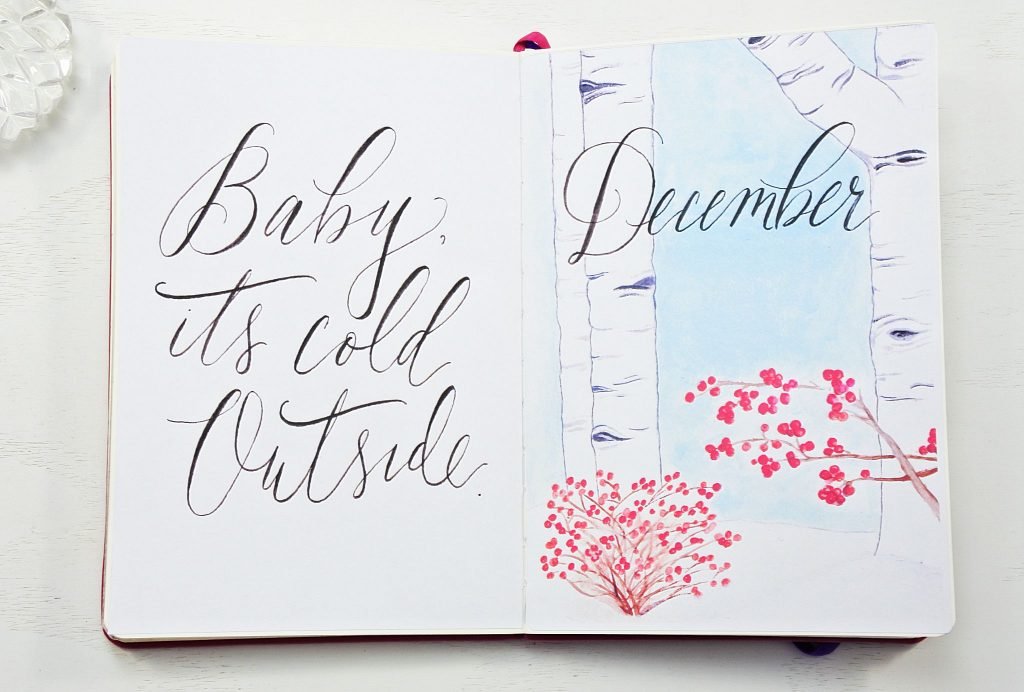 Baby,
it's cold
Outside.
December